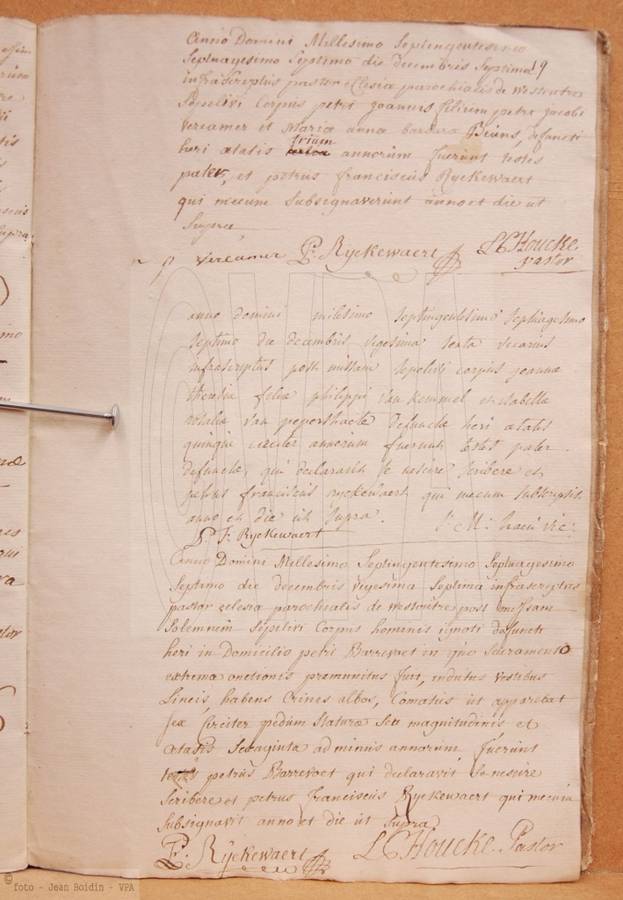 Anno Domini Millesimo Septingentesimo
Septuagesimo Septimo die decembris Septima 19
infrascriptus pastor Eclesiæ parochialis de Westoutre
Sepelivi Corpus petri joannis filium petri jacobi
Vereamer et Maria anna barbara defuncti
heri ætatis trium annorum fuerunt testes
pater, et petrus franciscus Ryckewaert
qui mecum Subsignaverunt anno et die ut
Supra
p vereamer P: f: Ryckewaert L C Houcke
pastor
anno domini milesimo septingentesimo septuagesimo
septimo die decembris vigesima sexta vicarius
infrascriptus post missam sepelivi corpus joannæ
theresiæ filiæ philippi van kemmel et isabella
rosalia van peperstraete defunctæ heri ætatis
quinque circiter annorum fuerunt testes pater
defunctæ qui declaravit se nescire scribere et
petrus franciscus ryckewaert qui mecum subscripsit
anno et die ut supra. vic:
P. F: Ryckewaert
Anno Domini Millesimo Septingentesimo Septuagesimo
Septimo die decembris vigesima Septima infrascriptus
pastor eclesiæ parochialis de westoutre post missam
Solemnem Sepelivi Corpus hominis ignoti defuncti
heri in Domicilio petri Barrevoet in quo Sacramento
extremæ onctionis præmunitus fuit, indutus vestibus
Lineis, habens Crines albos, Comatus ut apparebat
sex Circiter pedum Staturæ Seu magnitudinis et
ætatis Sexaginta ad minus annorum fuerunt
testes petrus Barrevoet qui declaravit Se nescire
Scribere et petrus Franciscus Ryckewaert qui mecum
Subsignavit anno et die ut Supra
P: f: Ryckewaert L C Houcke Pastor
© foto - Jean Boidin - VPA